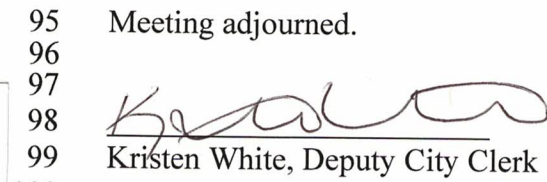 95 Meeting adjourned.
96
97
98
99 Kristen White, Deputy City Clerk